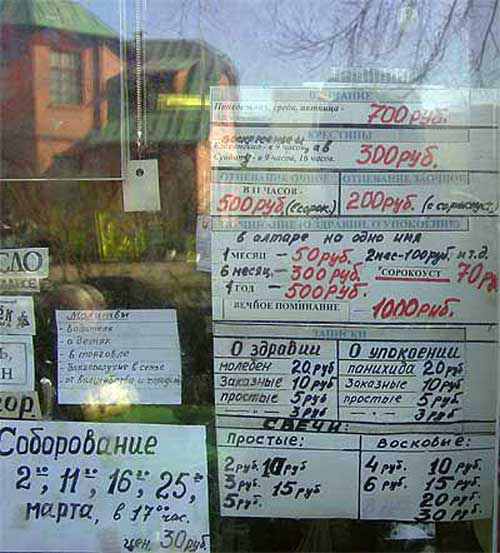 ВЕНЧАНИЕ
Понедельник, среда, пятница - 700 руб.
КРЕСТИНЫ
воскресение и
в 9 часов,
Суббота - в 9 часов, 16 часов. 300 руб.
ОТПЕВАНИЕ ОЧНОЕ ОТПЕВАНИЕ ЗАОЧНОЕ
В 11 ЧАСОВ -
500 руб. (сорок.) 200 руб. (с сорокоуст.)
ПОМИНАНИЕ О ЗДРАВИИ, О УПОКОЕНИИ
в алтаре на одно имя
1 МЕСЯЦ - 50 руб. 2 мес-100 руб. и т.д.
6 месяц. - 300 руб. "СОРОКОУСТ 70 ру
1 ГОД - 500 руб.
ВЕЧНОЕ ПОМИНАНИЕ - 1000 руб.
ЗАПИСКИ
О здравии О упокоении
молебен 20 руб панихида 20 руб
Заказные 10 руб Заказные 10 руб
простые 5 руб простые 5 руб
— „ — 3 руб — „ — 3 руб
СВЕЧИ:
Простые: Восковые:
2 руб. 10 руб 4 руб. 10 руб.
3 руб. 15 руб 6 руб. 15 руб.
5 руб. 20 руб
30 руб
СЛО
Молитвы
- водителя
- о детях
- в торговле
- Благополучие в семье
- от волшебства и
ор
Соборование
2⁰⁰, 11⁰⁰, 16⁰⁰, 25⁰⁰,
марта, в 17⁰⁰ час.
цен. 30 руб.